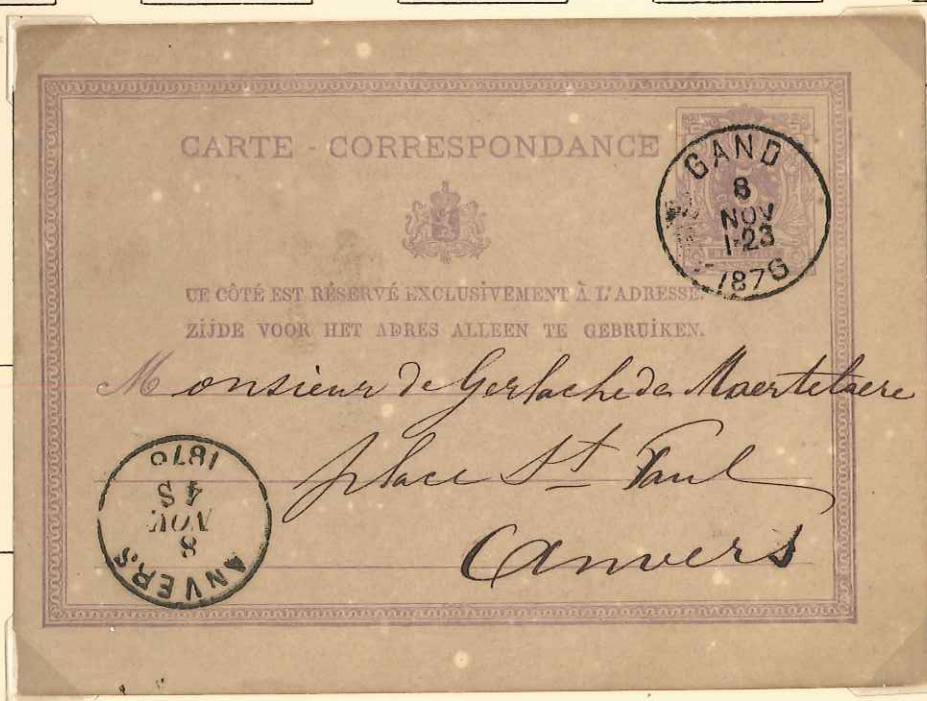 CARTE - CORRESPONDANCE
GAND
8
NOV
1-23
1876
CE CÔTÉ EST RÉSERVÉ EXCLUSIVEMENT À L'ADRESSE.
ZIJDE VOOR HET ADRES ALLEEN TE GEBRUIKEN.
Monsieur de Gerlache de Maertelaere
place St Paul
Anvers
ANVERS
8
NOV
4 S